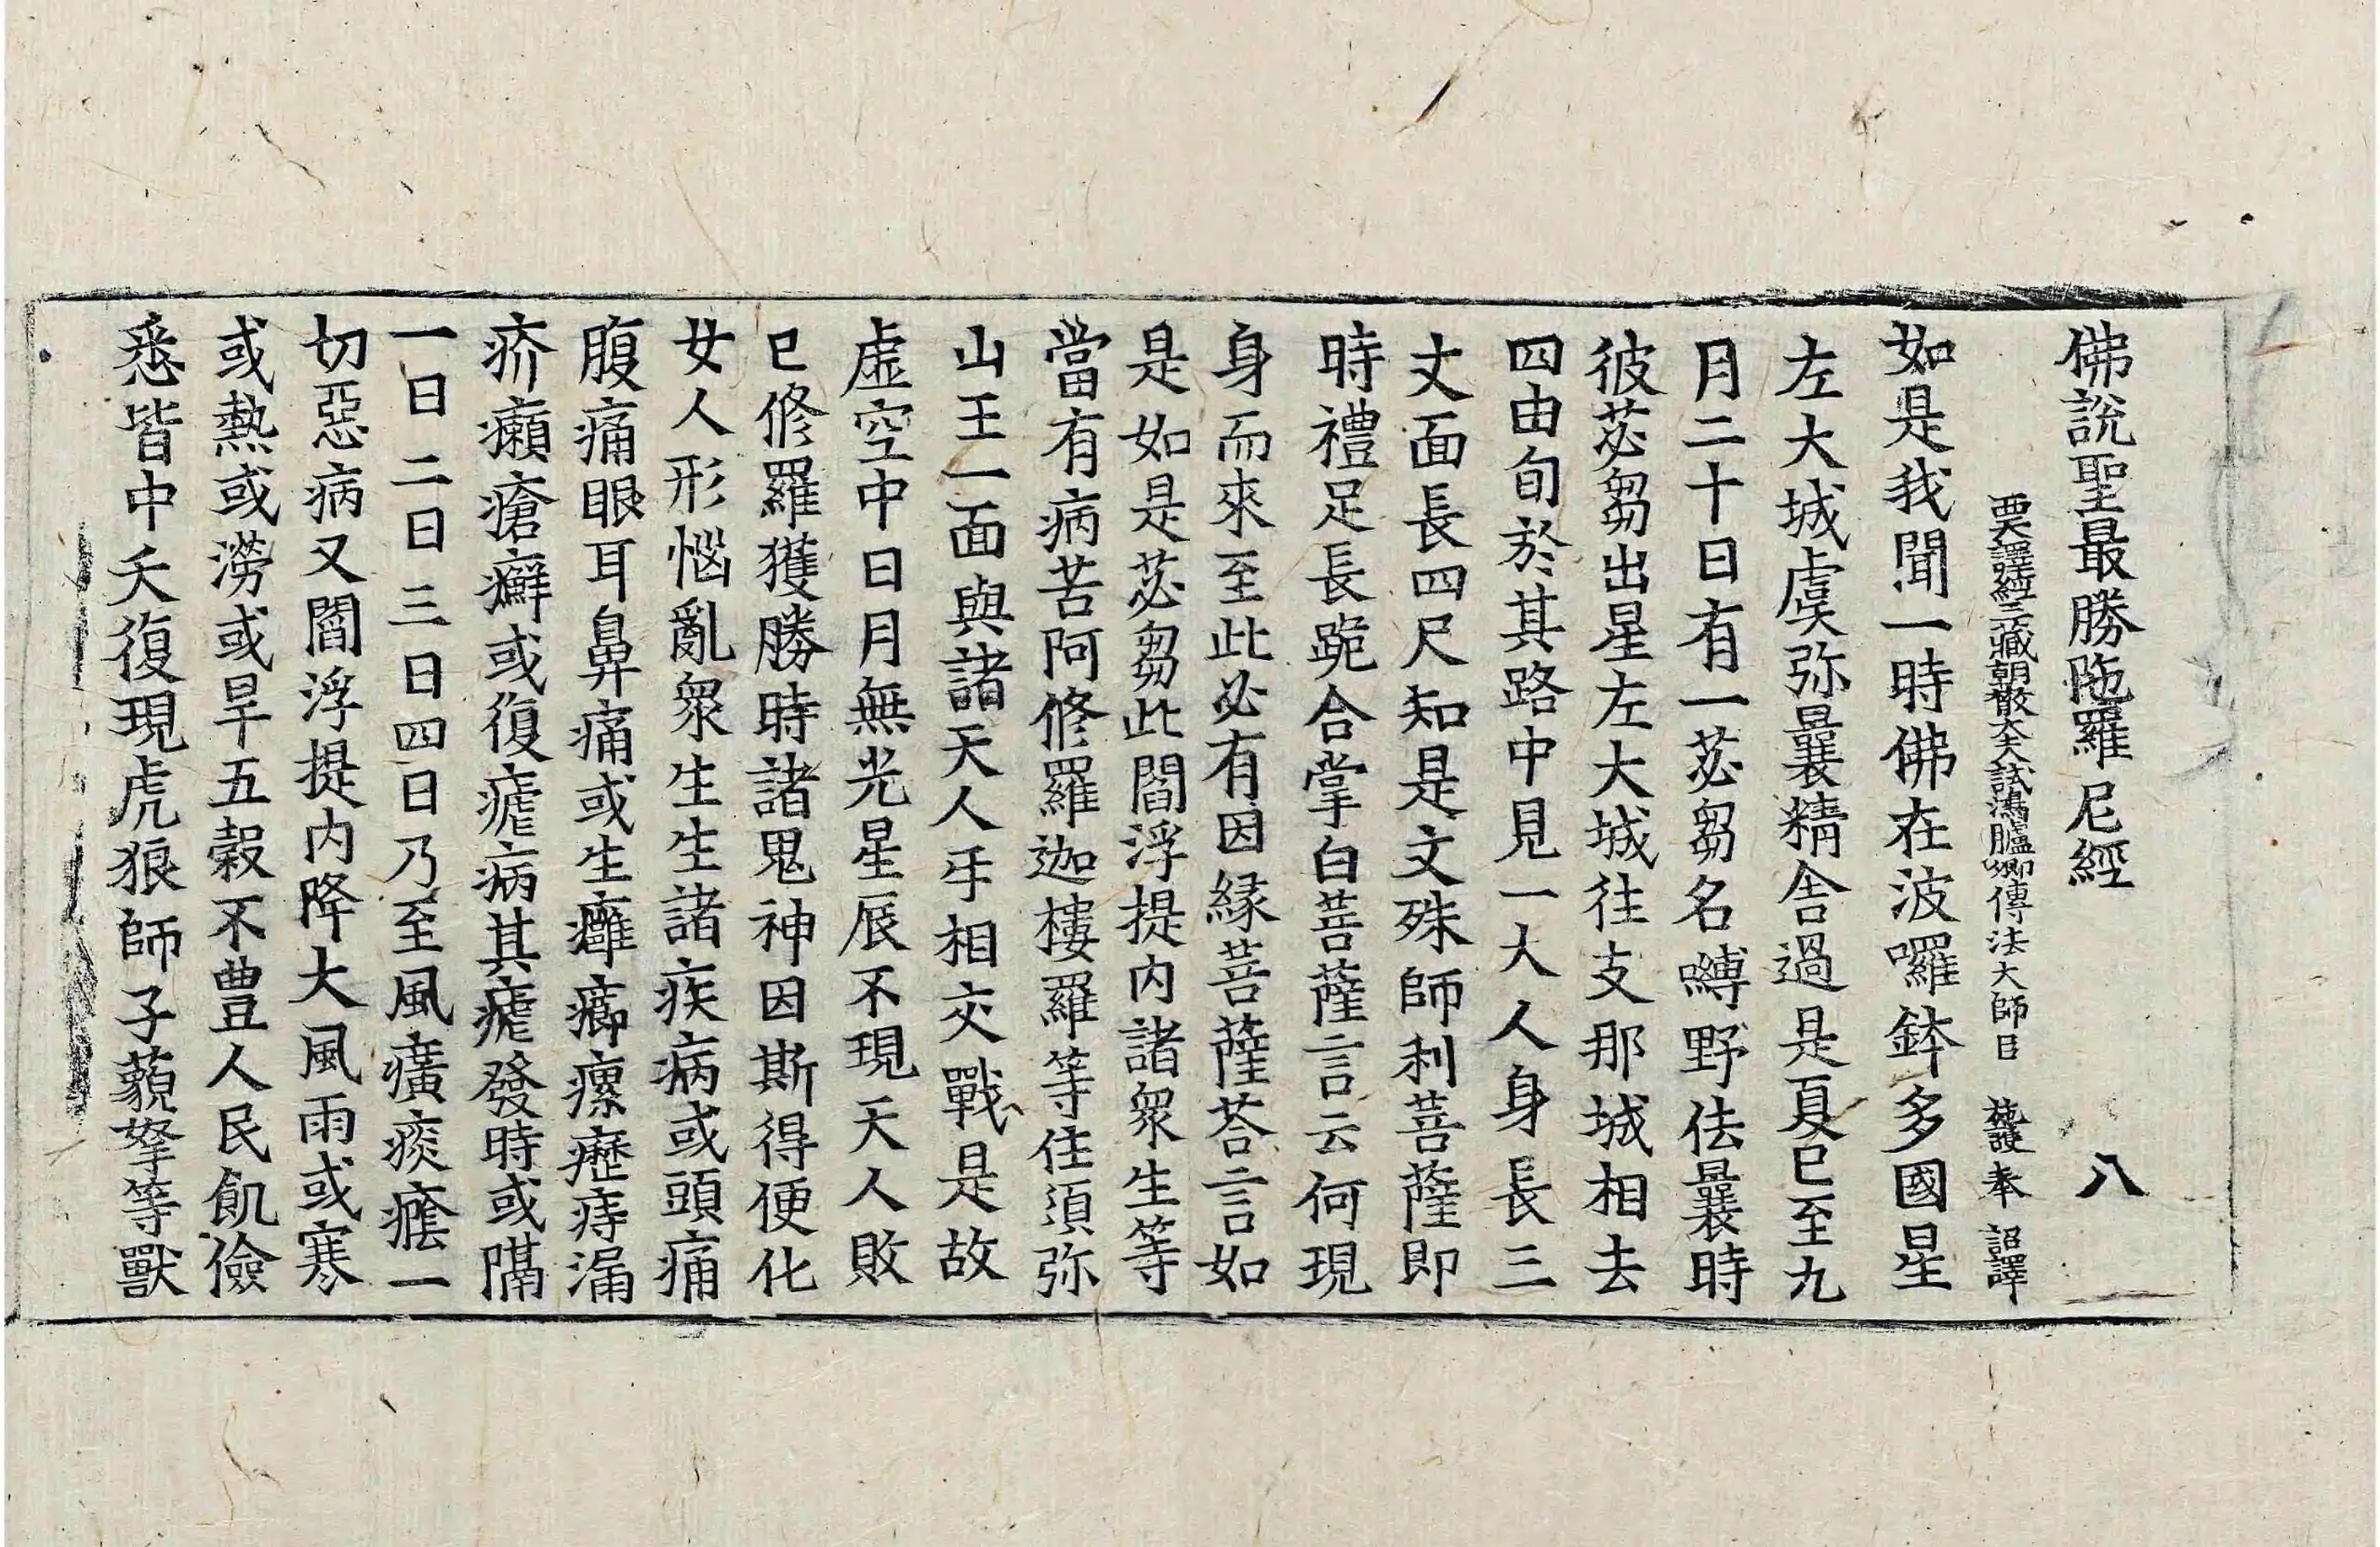 佛說聖最勝陁羅尼經 八
西天譯經三藏朝散大夫試鴻臚卿傳法大師臣 施護奉 詔譯
如是我聞一時佛在波囉鉢多國星
左大城虞弥曩精舍過是夏已至九
月二十日有一苾芻名嚩野佉曩時
彼苾芻出星左大城往支那城相去
四由旬於其路中見一大人身長三
丈面長四尺知是文殊師利菩薩即
時禮足長跪合掌白菩薩言云何現
身而來至此必有因緣菩薩荅言如
是如是苾芻此閻浮提内諸衆生等
當有病苦阿修羅迦樓羅等住須弥
山王一面與諸天人㸦相交戰是故
虛空中日月無光星辰不現天人敗
已修羅獲勝時諸鬼神因斯得便化
女人形惱亂衆生生諸疾病或頭痛
腹痛眼耳鼻痛或生癰癤瘰癧痔漏
疥癩瘡癬或復瘧病其瘧發時或隔
一日二日三日四日乃至風癀痰癊一
切惡病又閻浮提内降大風雨或寒
或熱或澇或旱五穀不豊人民飢儉
悉皆中夭復現虎狼師子藐拏等獸